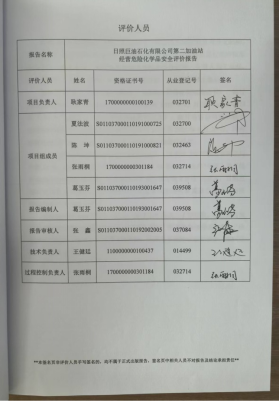 评价人员
报告名称 日照巨迪石化有限公司第二加油站
经营危险化学品安全评价报告
评价人员 姓名 资格证书号 从业登记号 签名
项目负责人 耿家青 1700000000100139 032701 耿家青
项目组成员 夏法波 S011037000110191000725 032700
陈坤 S011037000110191000821 032463
张雨桐 1700000000301184 032714 张雨桐
葛玉芬 S011037000110193001647 039508
报告编制人 葛玉芬 S011037000110193001647 039508
报告审核人 张鑫 S011037000110192002005 037084
技术负责人 王健廷 1100000000100437 014499
过程控制负责人 张雨桐 1700000000301184 032714 张雨桐